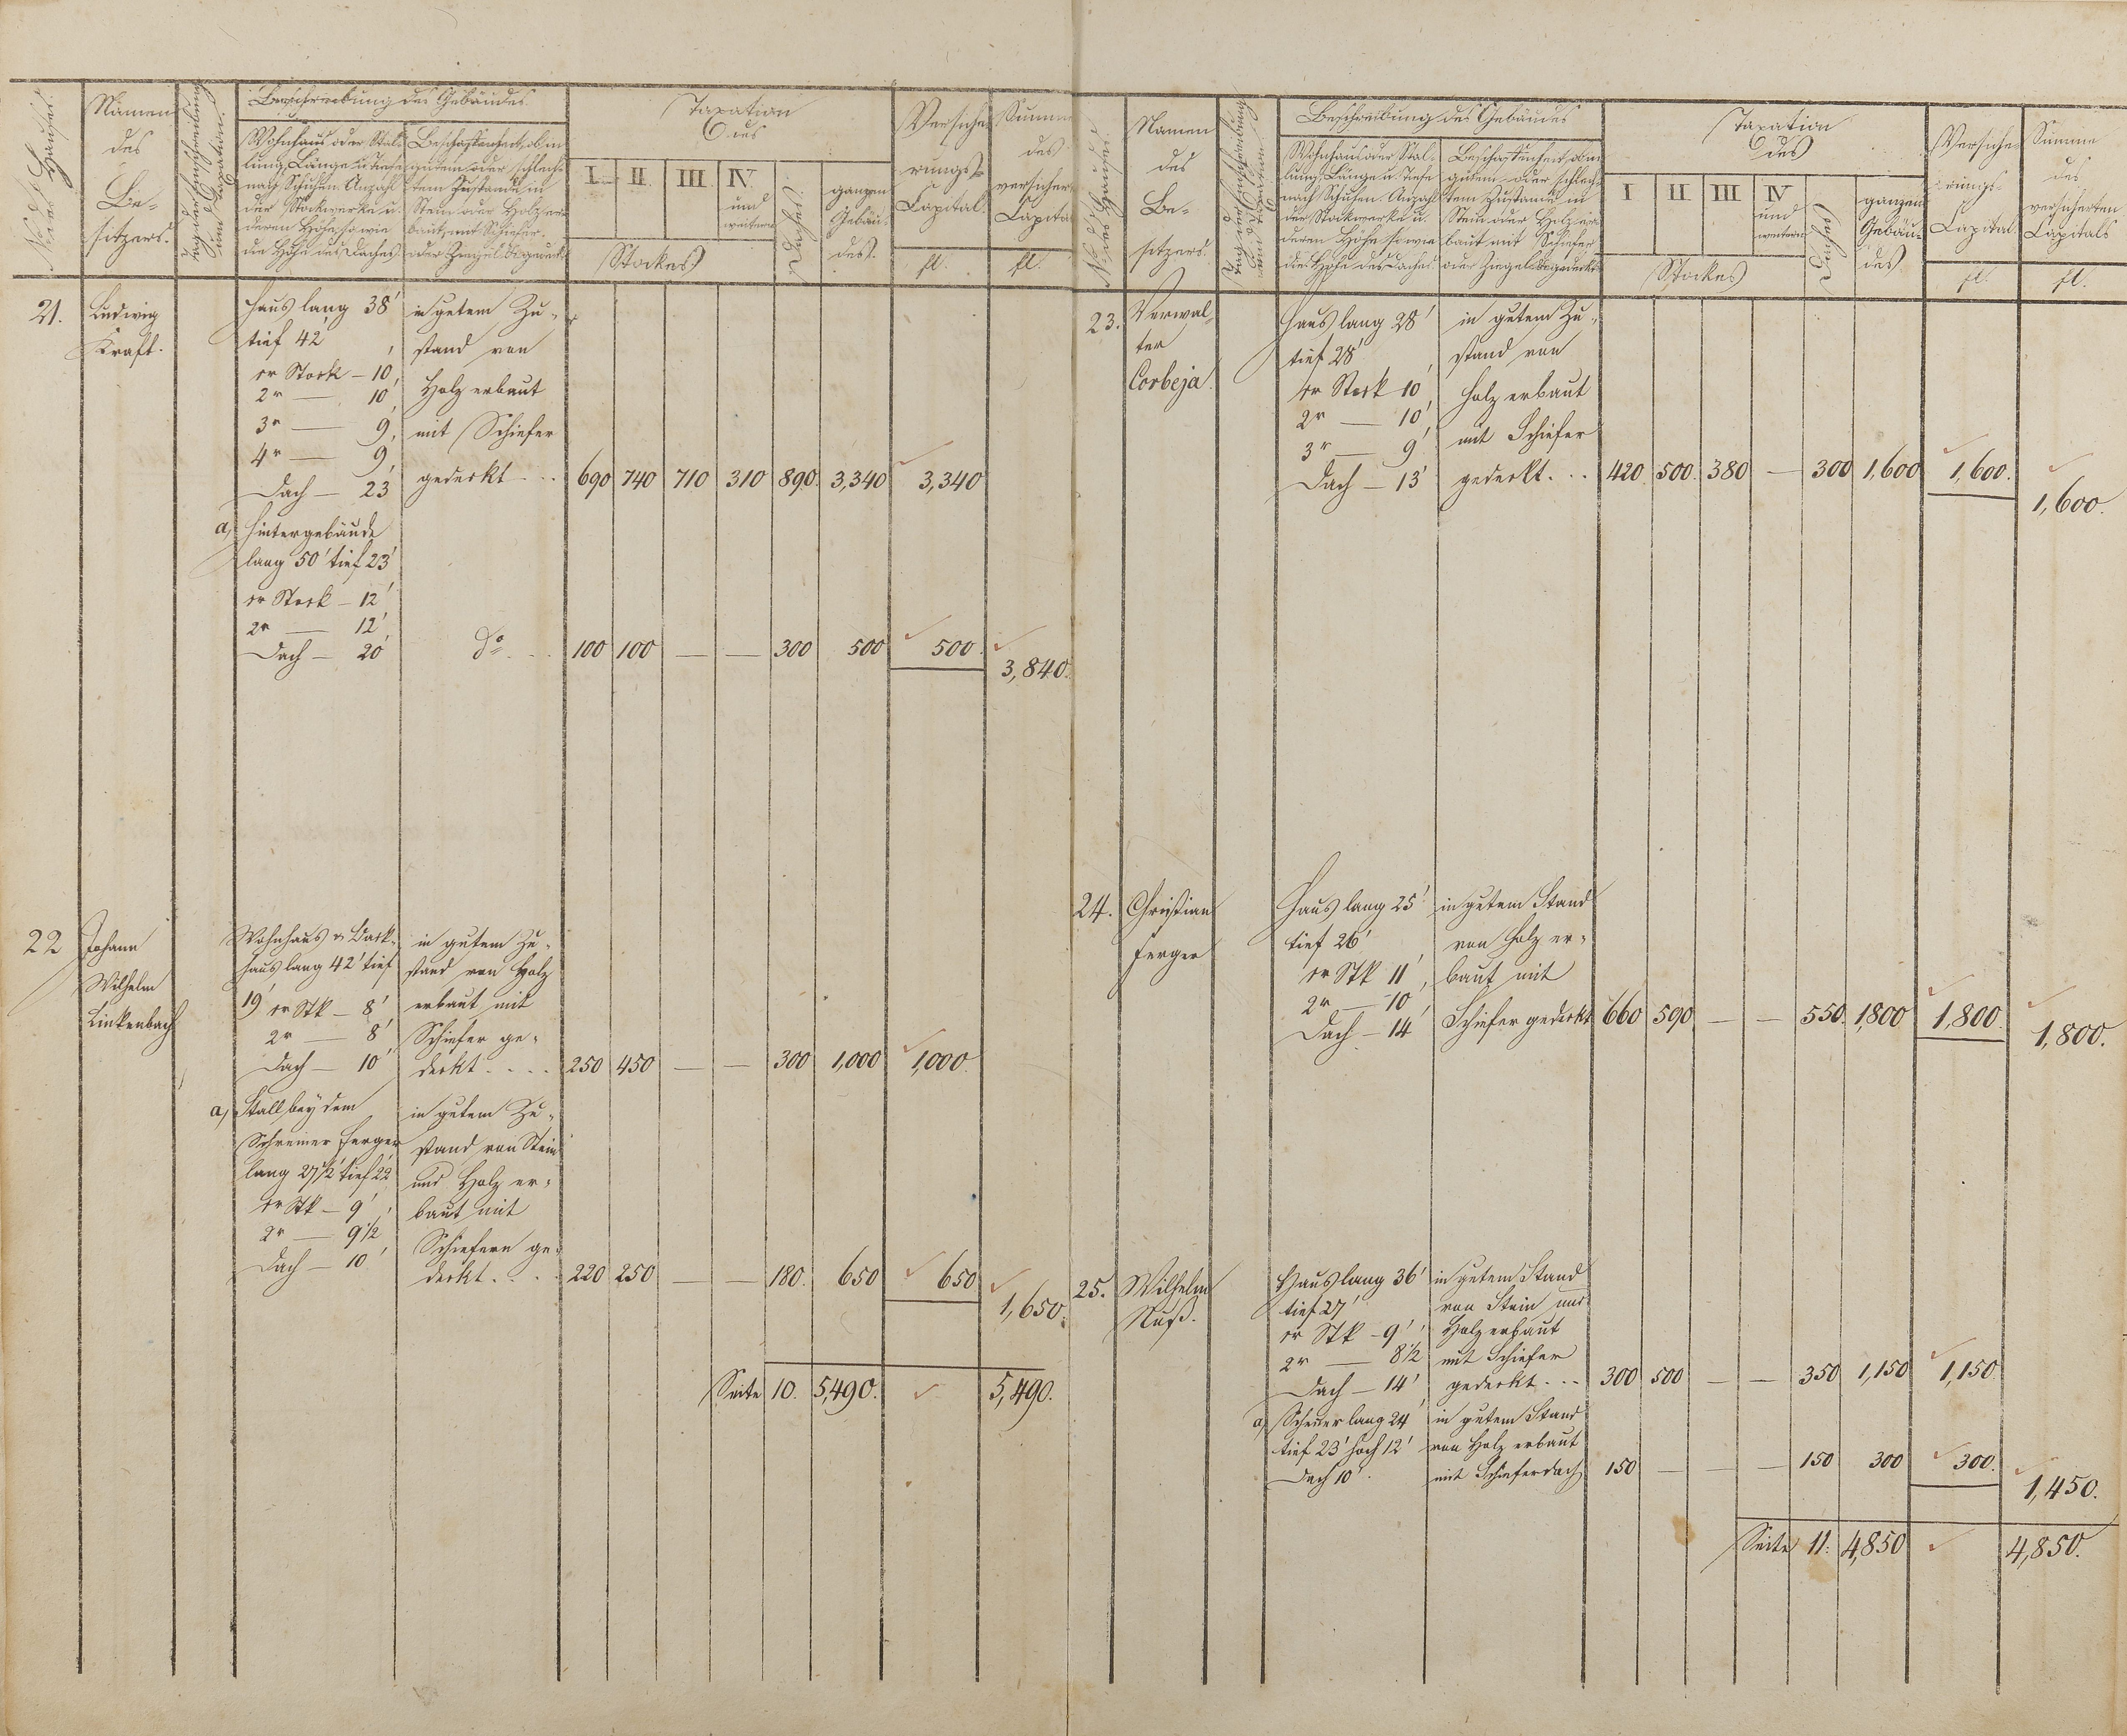 No des Hauses.
Namen
des
Be-
sitzers.
Tag der Einschreibung
und Taxation.
Beschreibung des Gebäudes
Wohnhaus oder Stal-
lung, Länge u. Tiefe
nach Schuhen. Anzahl
der Stockwerke u.
deren Höhe sowie
die Höhe des Daches
Beschaffenheit, ob in
gutem oder schlech-
tem Zustande in
Stein oder Holz er-
baut, mit Schiefer
oder Ziegel bedeckt
Taxation
des
I. II. III. IV.
und
weitern
Stockes
Daches.
ganzen
Gebäu-
des.
Versiche-
rungs-
Capital.
fl.
Summe
des
versicher
Capita
fl.
21. Ludwig
Kraft.
Haus lang 38'
tief 42'
1r Stock – 10'
2r — 10'
3r — 9'
4r — 9'
Dach – 23'
in gutem Zu-
stand von
Holz erbaut
mit Schiefer
gedeckt 690 740 710 310 890. 3,340 3,340
a) Hintergebäude
lang 50' tief 23'
1r Stock – 12'
2r — 12'
Dach – 20'
do 100 100 — — 300 500 500.
3,840.
22 Johann
Wilhelm
Linkenbach
Wohnhaus u Back-
haus lang 42' tief
19' 1r Stk – 8'
2r — 8'
Dach – 10'
in gutem Zu-
stand von Holz
erbaut mit
Schiefer ge-
deckt 250 450 — — 300 1,000 1,000.
a) Stall bey dem
Schreiner Ferger
lang 27 1/2' tief 22'
1r Stk – 9'
2r — 9 1/2
Dach – 10'
in gutem Zu-
stand von Stein
und Holz er-
baut mit
Schiefern ge-
deckt 220 250 — — 180. 650 650
1,650.
Seite 10. 5,490. 5,490.
No des Hauses.
Namen
des
Be-
sitzers.
Tag der Einschreibung
und Taxation.
Beschreibung des Gebäudes
Wohnhaus oder Stal-
lung, Länge u. Tiefe
nach Schuhen. Anzahl
der Stockwerke u.
deren Höhe sowie
die Höhe des Daches
Beschaffenheit, ob in
gutem oder schlech-
tem Zustande in
Stein oder Holz er-
baut mit Schiefer
oder Ziegel bedeckt
Taxation
des
I II III IV
und
weitern
Stockes
Daches
ganzen
Gebäu-
des
Versiche-
rungs-
Capital
fl.
Summe
des
versicherten
Capitals
fl.
23. Verwal-
ter
Corbeja.
Haus lang 28'
tief 28'
1r Stock 10'
2r — 10'
3r — 9'
Dach – 13'
in gutem Zu-
stand von
Holz erbaut
mit Schiefer
gedeckt. 420 500. 380 — 300 1,600 1,600.
1,600.
24. Christian
Ferger
Haus lang 25'
tief 26'
1r Stk 11'
2r — 10'
Dach – 14'
in gutem Stand
von Holz er-
baut mit
Schiefer gedeckt 660 590 — — 550. 1,800 1,800.
1,800.
25. Wilhelm
Nuß.
Haus lang 36'
tief 27'
1r Stk – 9'
2r — 8 1/2'
Dach – 14'
in gutem Stand
von Stein und
Holz erbaut
mit Schiefer
gedeckt 300 500 — — 350 1,150 1,150
a) Scheuer lang 24'
tief 23' hoch 12'
Dach 10'.
in gutem Stand
von Holz erbaut
mit Schieferdach 150 — — — 150 300 300.
1,450.
Seite 11. 4,850 4,850.